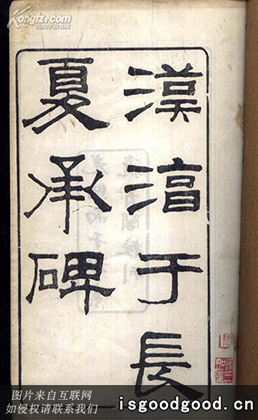 Kongfz.com
漢湻于長
夏承碑
图片来自互联网
如侵权请联系我们
isgoodgood.com